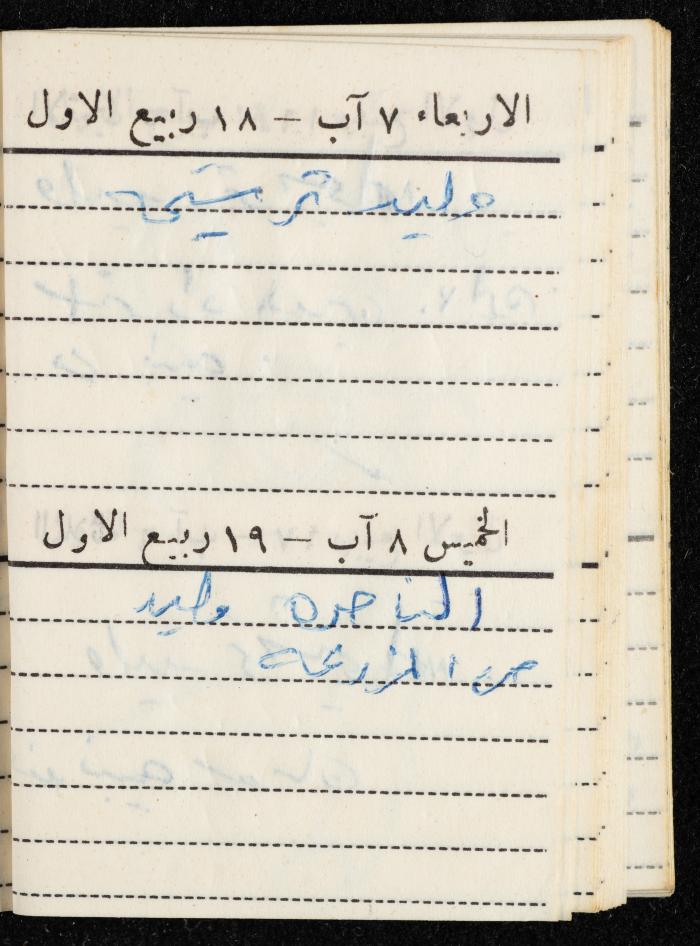 الاربعاء ٧ آب – ١٨ ربيع الاول
وليد ترشيحا
الخميس ٨ آب – ١٩ ربيع الاول
الناصرة وليد
المزرعة